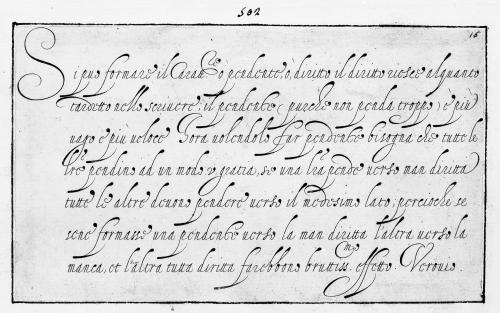 502
16
Si puo formare il Caratt.re o pendente, o, diritto il diritto riesce alquanto
tardetto nello scrivere; il pendente, purche non penda troppo, è piu
vago e piu veloce. Hora volendolo far pendente bisogna che tutte le
lre pendino ad un modo, v gratia, se una lra pende verso man diritta
tutte le altre devono pendere verso il medesimo lato; percioche se
sene formasse una pendente verso la man diritta l'altra verso la
manca, et l'altra tutta diritta farebbono bruttiss.mo effetto.